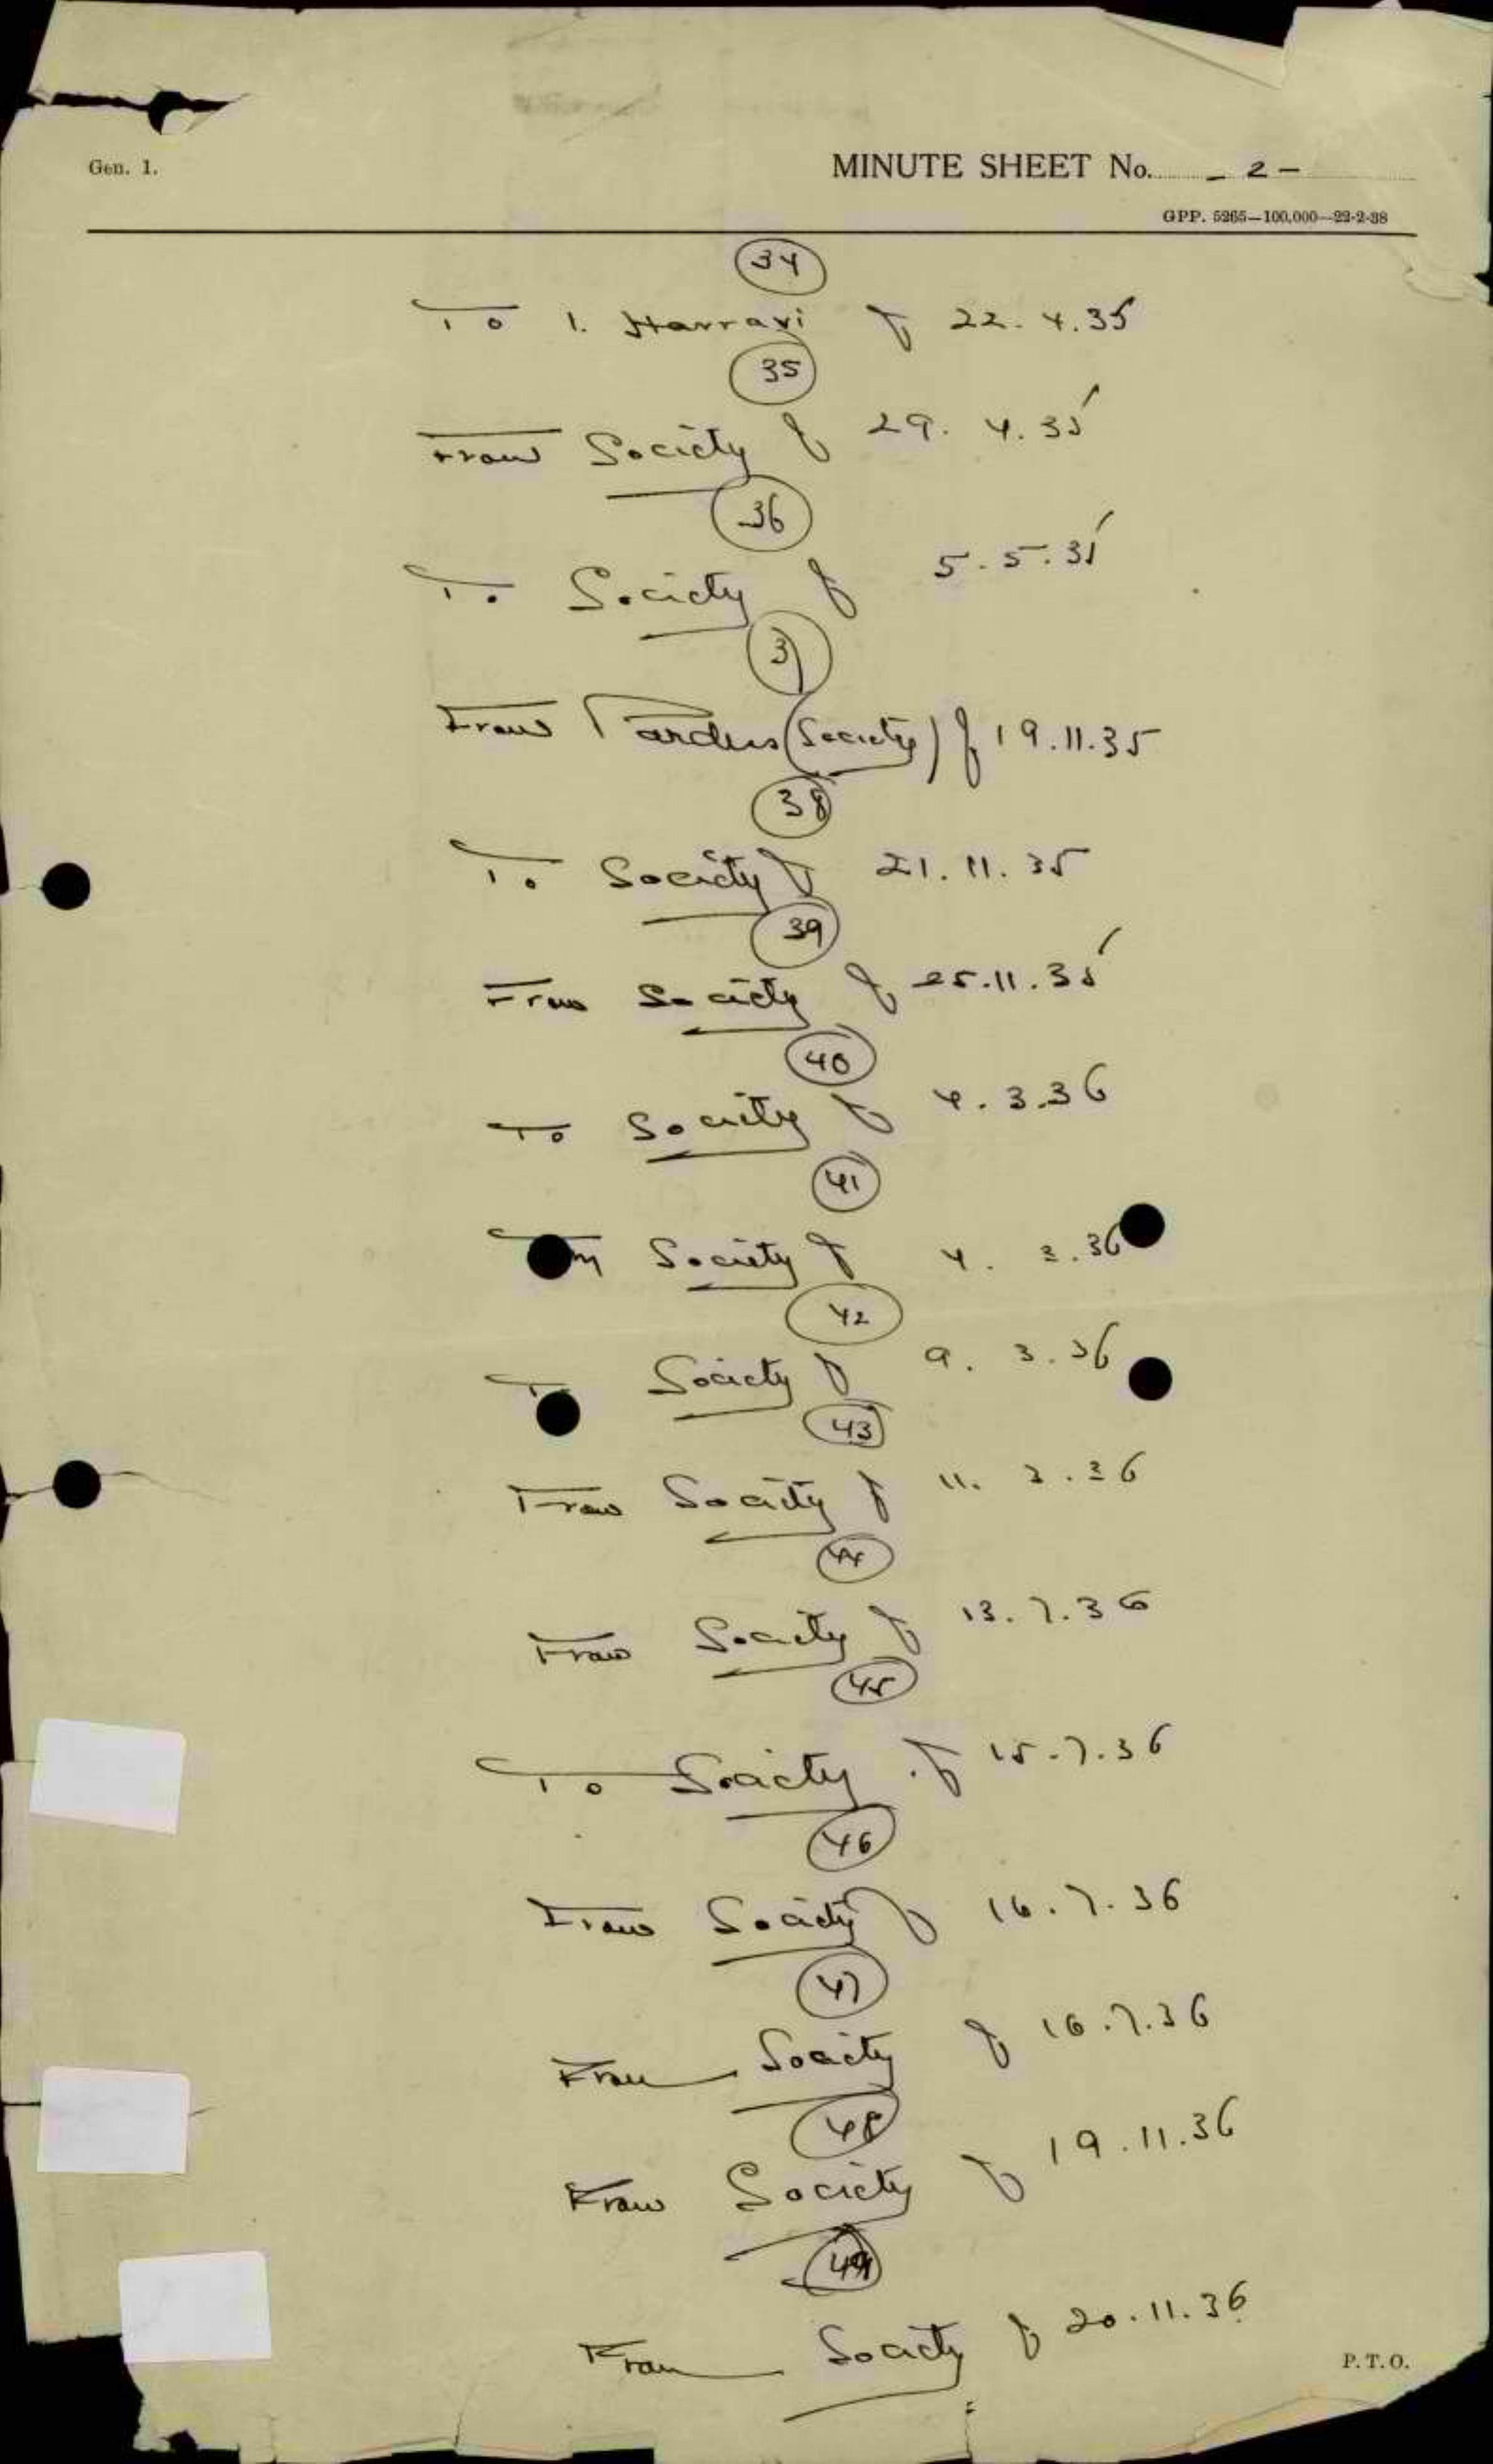 Gen. 1.
MINUTE SHEET No. - 2 -
GPP. 5265—100,000—22-2-38
34
To I. Harrari of 22. 4. 35
35
From Society of 29. 4. 35
36
To Society of 5. 5. 35
37
From Pardess (Society) of 19.11.35
38
To Society of 21. 11. 35
39
From Society of 25.11.35
40
To Society of 4. 3.36
41
Society of 4. 3.36
42
To Society of 9. 3.36
43
From Society of 11. 3.36
44
From Society of 13. 7.36
45
To Society of 15.7.36
46
From Society of 16.7.36
47
From Society of 16.7.36
48
From Society of 19.11.36
49
From Society of 20.11.36
P.T.O.